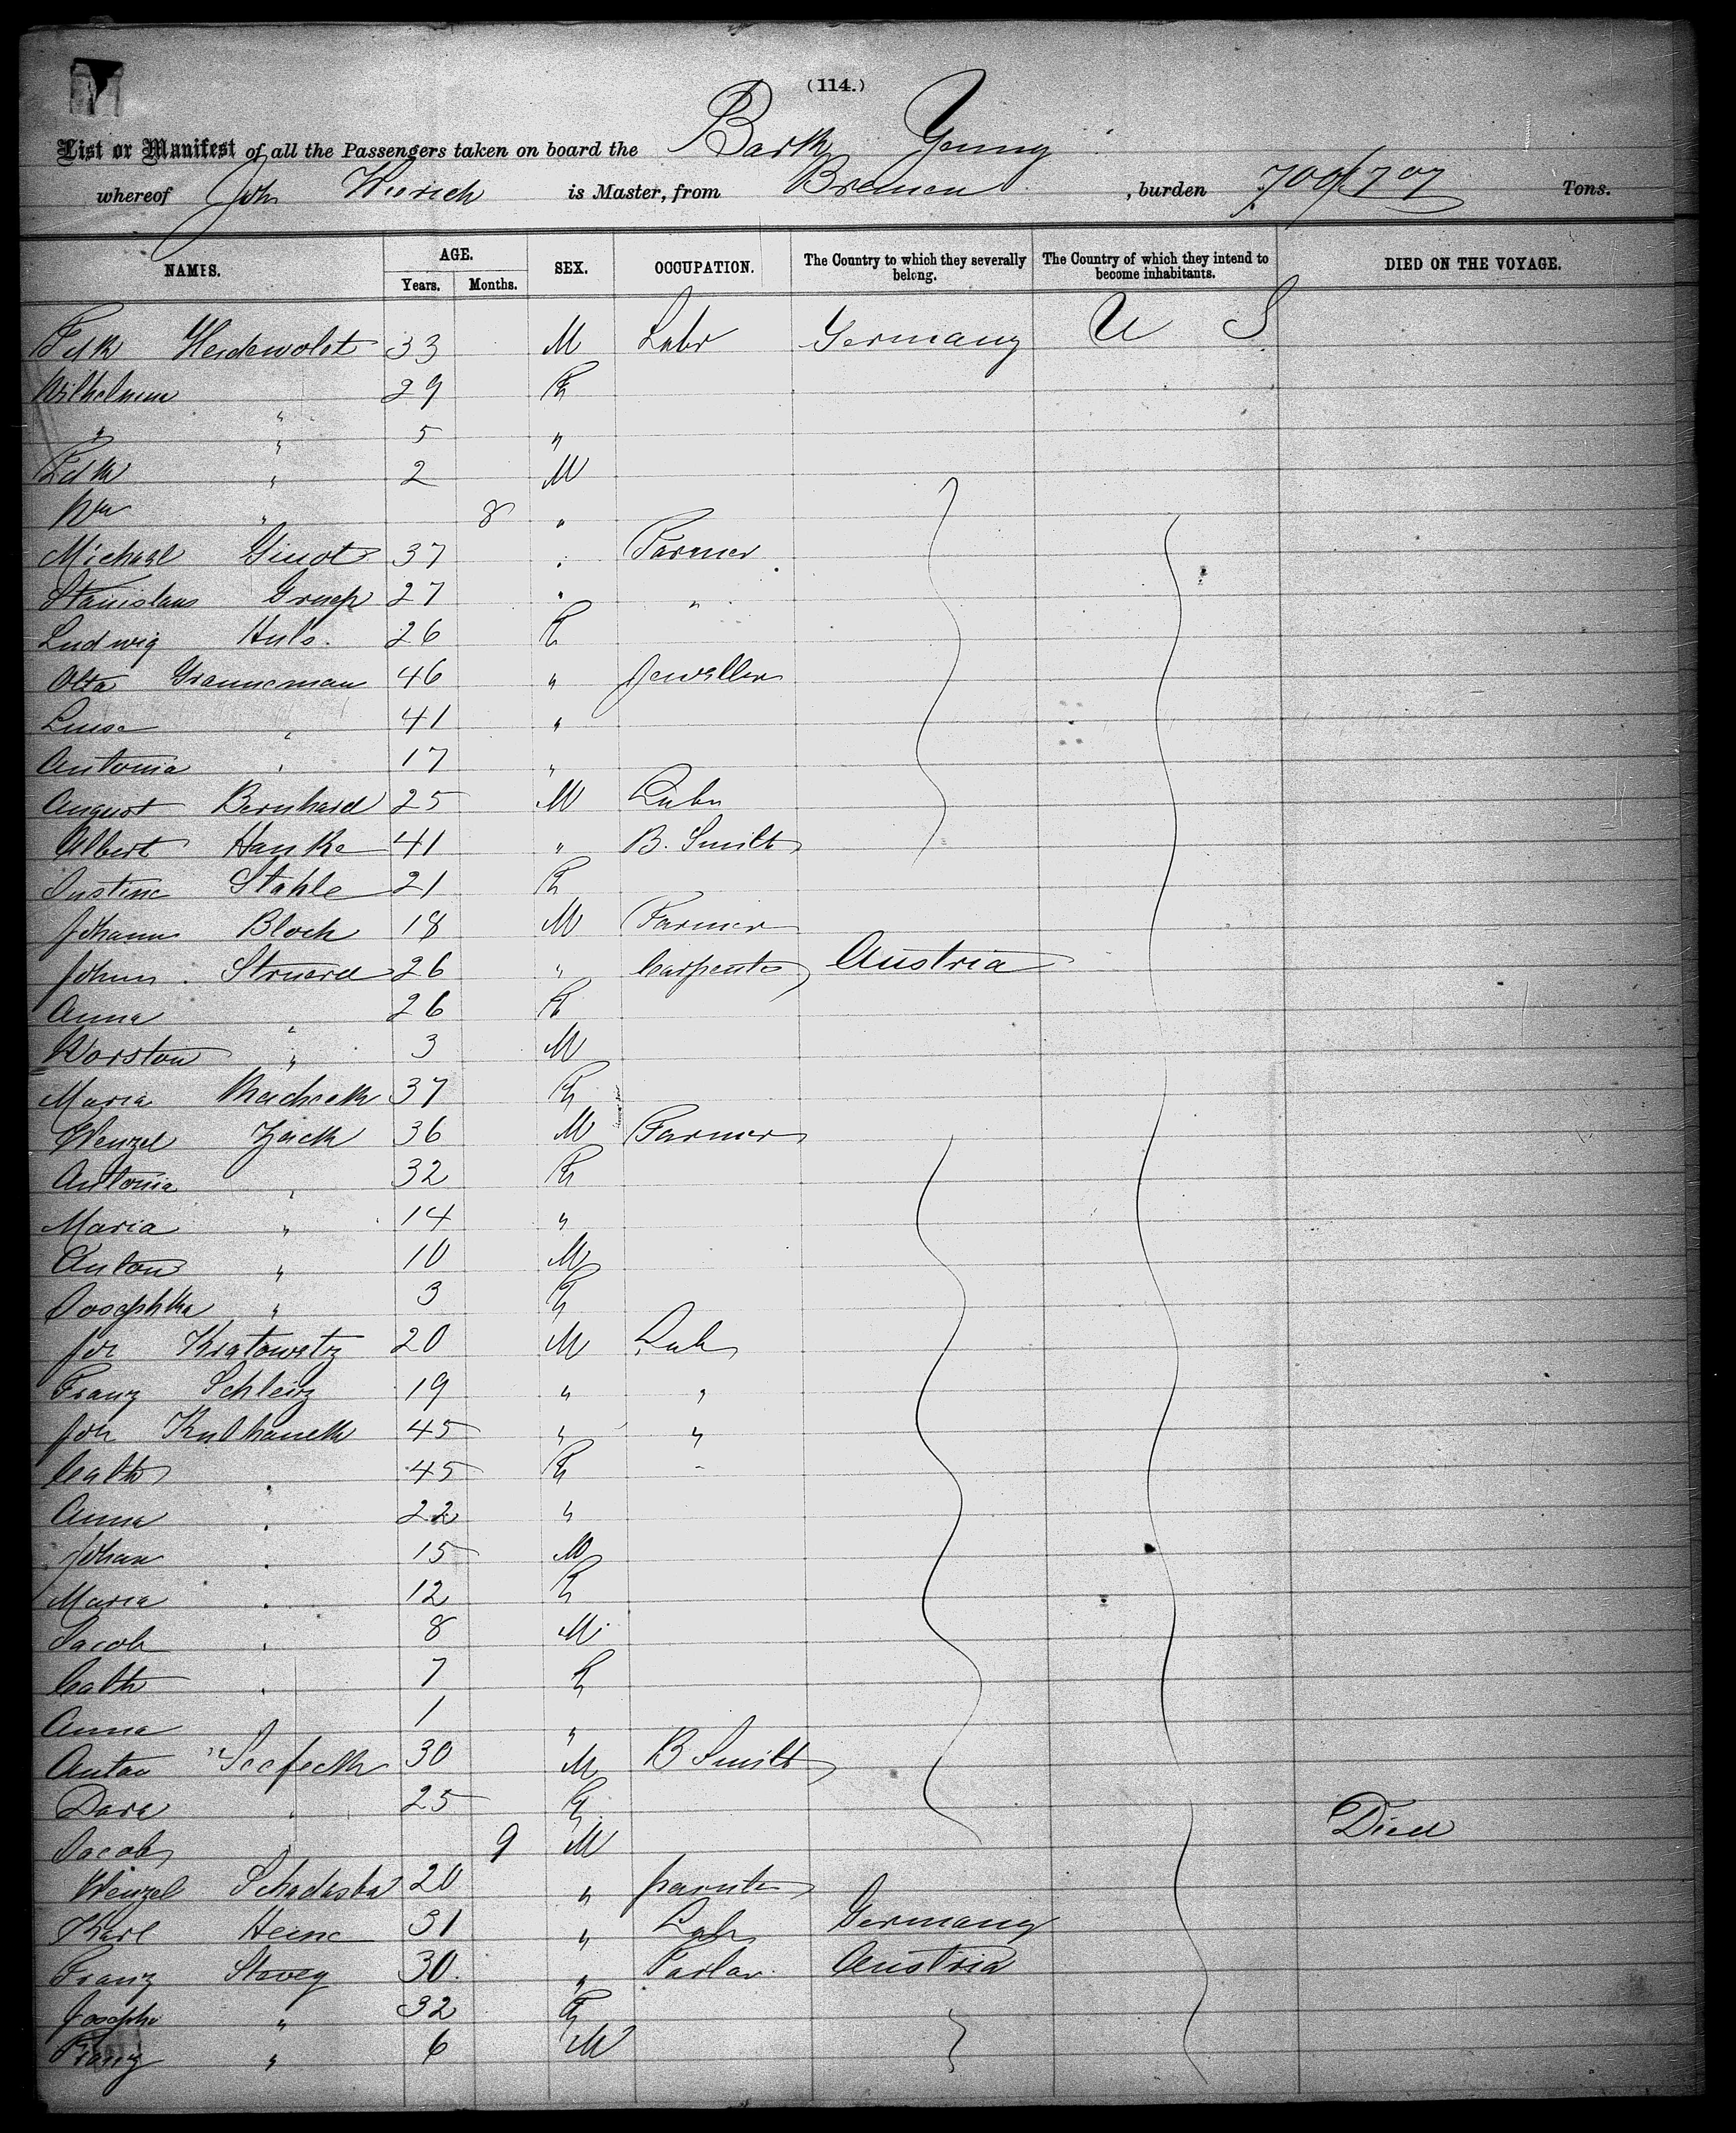 (114.)
List or Manifest of all the Passengers taken on board the Bark
whereof Joh is Master, from Bremen, burden 700/707 Tons.
NAMES. AGE. Years. Months. SEX. OCCUPATION. The Country to which they severally belong. The Country of which they intend to become inhabitants. DIED ON THE VOYAGE.
33 M Labr Germany U S
Wilhelmine " 29 F
" " 5 "
Fdk " 2 M
Wm " 8 "
Michael 37 " Farmer
Stanislaus 27 " "
Ludwig Huls. 26 F
Granneman 46 " Jeweller
Luise " 41 "
Antonia " 17 "
August Bernhard 25 M Labr
Albert Hanke 41 " B. Smith
Justine Stahle 21 F
Johann Bloch 18 M Farmer
Johann 26 " Carpenter Austria
Anna " 26 F
" 3 M
Maria 37 F
Wenzel 36 M Farmer
Antonia " 32 F
Maria " 14 "
Anton " 10 M
Josephka " 3 F
Joh 20 M Lab
Franz 19 " "
Joh Kulhanek 45 " "
Cath " 45 F
Anna " 22 "
Johan " 15 M
Maria " 12 F
Jacob " 8 M
Cath " 7 F
Anna " 1 "
Anton 30 M B Smith
" 25 F
Jacob " 9 M Died
Wenzel 20 "
Karl 31 " Lab Germany
Franz 30 " Austria
Josepha " 32 F
Franz " 6 M